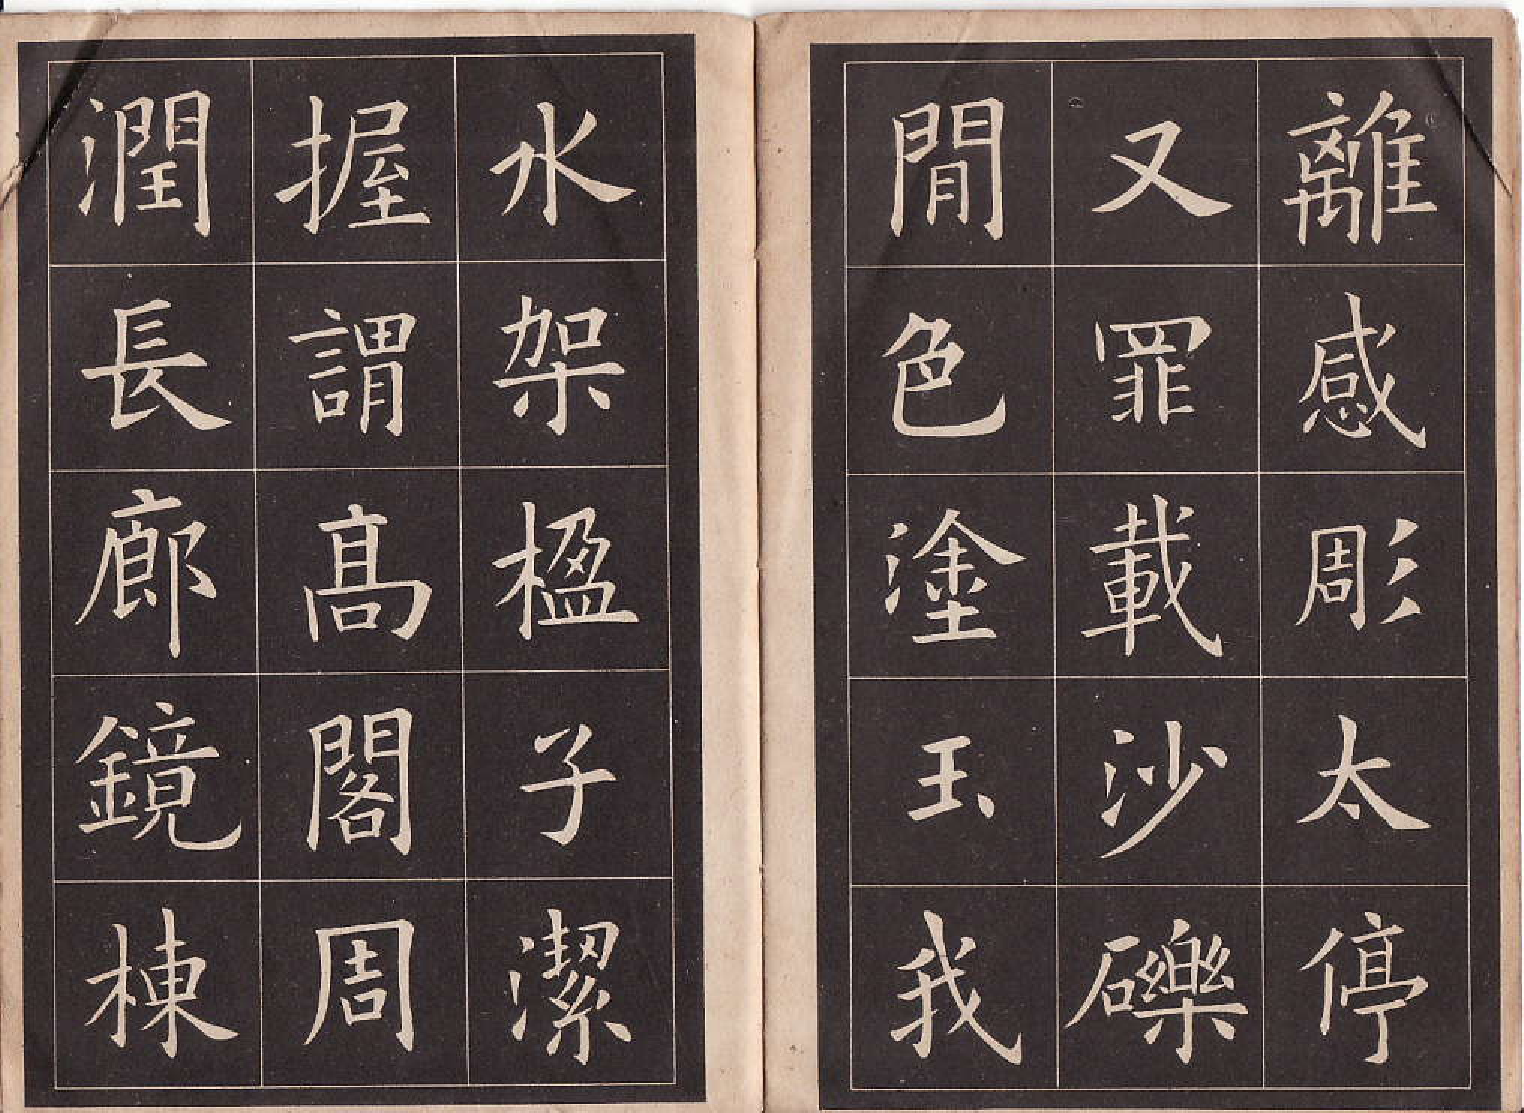 離感彫太停
又罪載沙礫
閒色塗玉我
水架楹子潔
握謂高閣周
潤長廊鏡棟